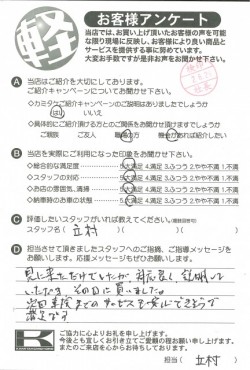 軽
お客様アンケート
当店では、お買い上げ頂いたお客様の声を可能
な限り現場に反映し、お客様により良い商品と
サービスを提供する事に努めています。
大変お手数ですが是非お声をお聞かせ下さい。
A 当店はご紹介を大切にしております。
ご紹介キャンペーンについてお聞かせ下さい。
◇カミタケご紹介キャンペーンのご説明はありましたでしょうか
はい いいえ
◇具体的にご紹介頂ける方とのご関係をお聞かせ頂けますでしょうか
ご親族 ご友人 職場の方 機会があれば紹介したい
B 当店を実際にご利用になった印象をお聞かせ下さい。
◇総合的な満足度 5.大満足 4.満足 3.ふつう 2.やや不満 1.不満
◇スタッフの対応 5.大満足 4.満足 3.ふつう 2.やや不満 1.不満
◇お店の雰囲気、清掃 5.大満足 4.満足 3.ふつう 2.やや不満 1.不満
◇納車時のお車の状態 5.大満足 4.満足 3.ふつう 2.やや不満 1.不満
C 評価したいスタッフがいれば教えてください。(複数回答可)
スタッフ名( 立村 )
D 担当させて頂きましたスタッフへのご指摘、ご指導メッセージを
お願いします。応援メッセージもぜひお聞かせ下さい。
見に来ただけでしたが、対応良く、説明して
いただき、その日に買いました。
K
ご協力に心よりお礼を申し上げます。
今後とも宜しくお引き立てご愛顧の程お願い申し上げます。
またのご来店を心からお待ちしております。
担当( 立村 )